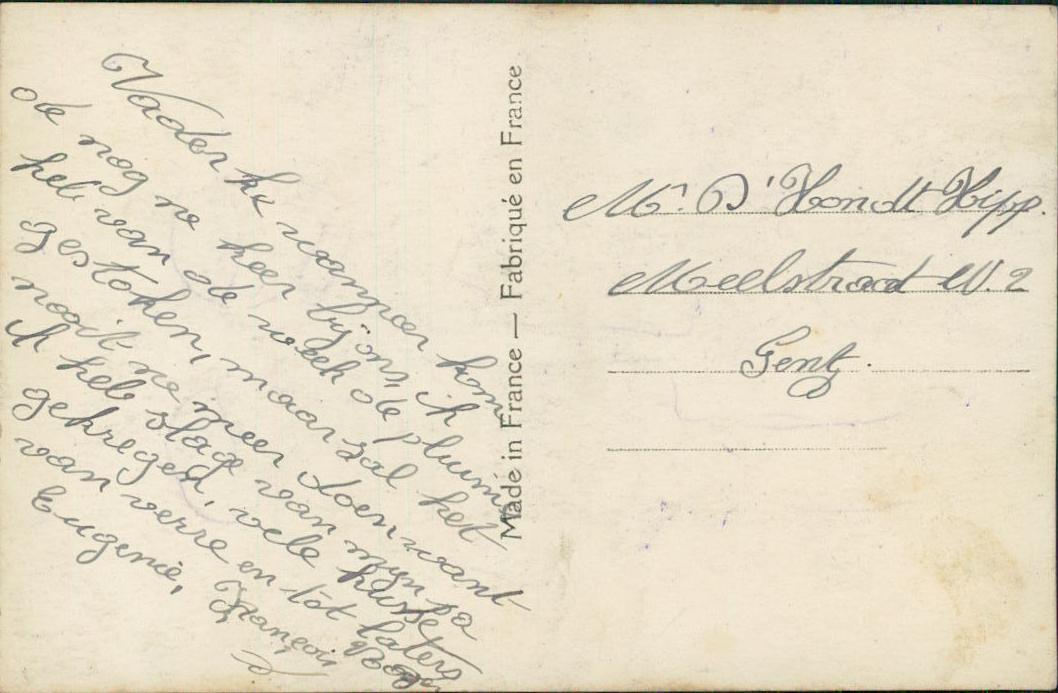 Vaderke wanneer kom
de nog ne keer bij ons, ik
heb van de week de pluim
gestoken, maar zal het
nooit ne meer doen want
ik heb slage van mijn pa
gekregen, vele kussen
van verre en tot laters
Eugenie, François
Made in France — Fabriqué en France
Mr. D'Hondt Hipp.
Meelstraat N. 2
Gent.